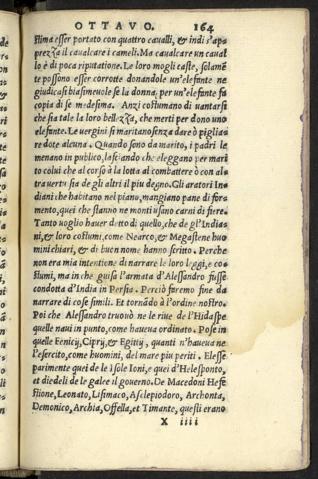 OTTAVO. 164
stima esser portato con quattro cavalli, & indi s'ap
prezza il caualcare i cameli. Ma caualcare un caual
lo è di poca riputatione. Le loro mogli caste, solamẽ
te possono esser corrotte donandole un'elefante ne
giudicasi biasimeuole se la donna, per un'elefante fa
copia di se medesima. Anzi costumano di uantarsi
che sia tale la loro bellezza, che merti per dono uno
elefante. Le uergini si maritano senza dare ò piglia-
re dote alcuna. Quando sono da marito, i padri le
menano in publico, lasciando che eleggano per mari
to colui che al corso à la lotta al combattere ò con al-
tra uertu sia de gli altri il piu degno. Gli aratori In-
diani che habitano nel piano, mangiano pane di for-
mento, quei che stanno ne monti usano carni di fiere.
Tanto uoglio hauer detto di quello, che de gl'India-
ni, & loro costumi, come Nearco, & Megastene huo-
mini chiari, & di buon nome hanno scritto. Perche
non era mia intentione di narrare le loro leggi, e co-
stumi, ma in che guisa l'armata d'Alessandro fusse
condotta d'India in Persia. Perciò faremo fine da
narrare di cose simili. Et tornãdo à l'ordine nostro.
Poi che Alessandro trouò ne le riue de l'Hidaspe
quelle naui in punto, come haueua ordinato. Pose in
quelle Fenicij, Ciprij, & Egittij, quanti n'haueua ne
l'esercito, come huomini, del mare piu periti. Elesse
parimente quei de le isole Ioni, e quei d'Helesponto,
et diedeli de le galee il gouerno. De Macedoni Hefe
stione, Leonato, Lisimaco, Asclepiodoro, Archonta,
Demonico, Archia, Offella, et Timante, questi erano
X iiii